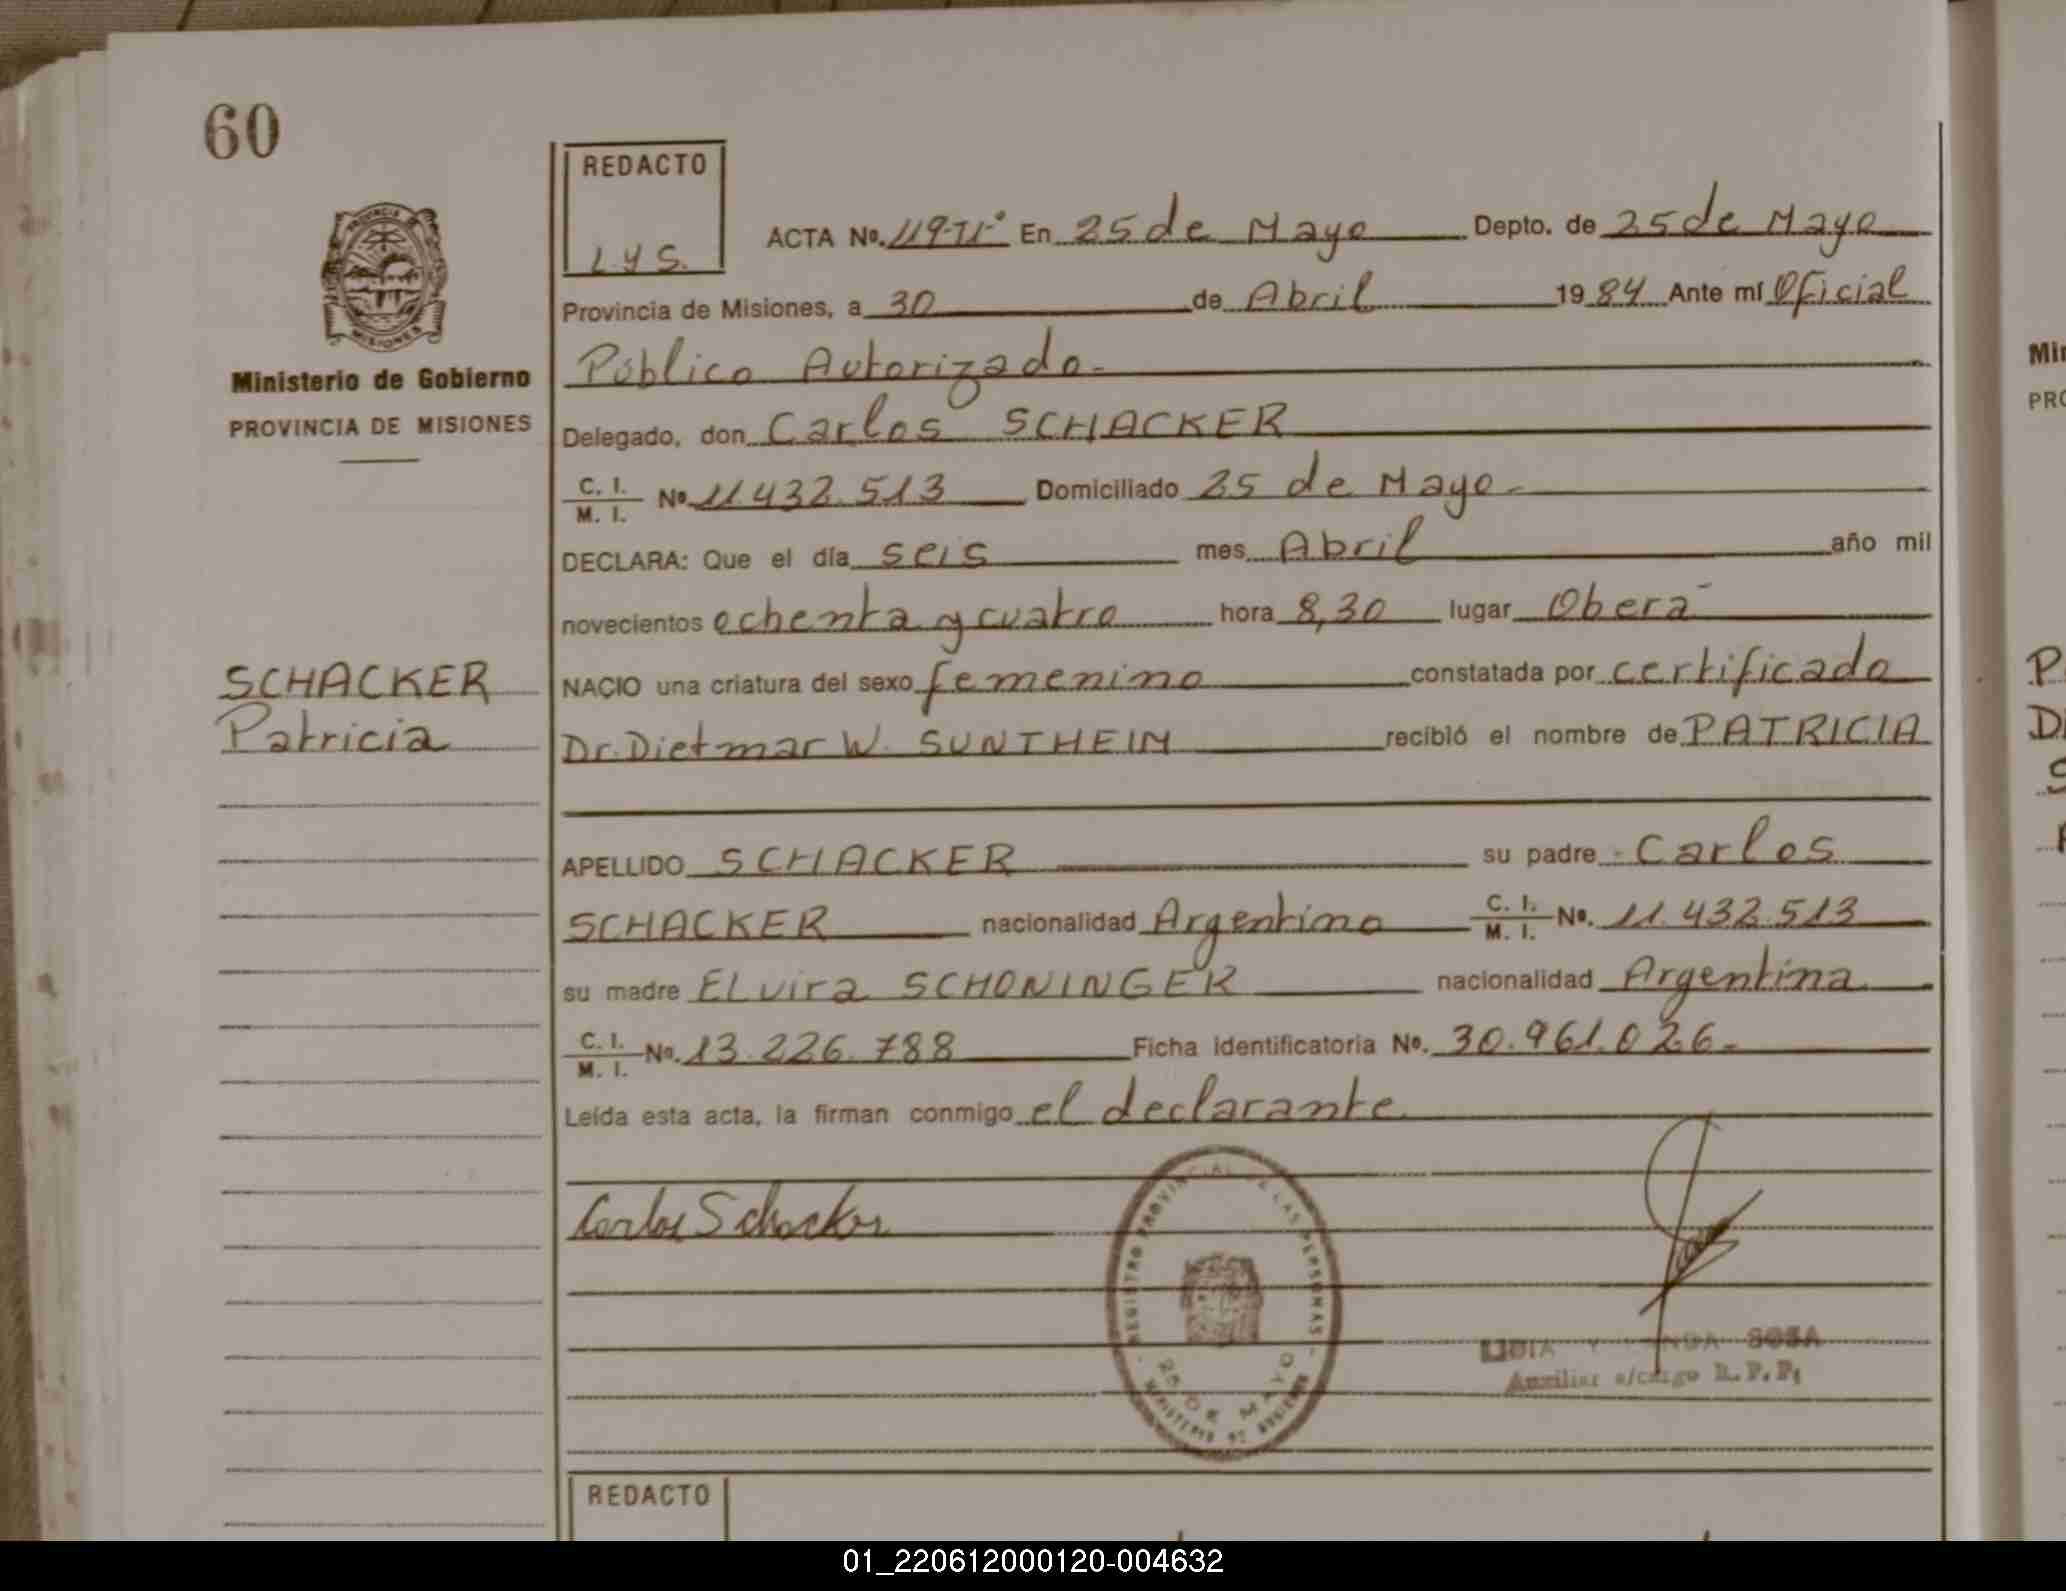 60
REDACTO
L.Y.S.
PROVINCIA DE
MISIONES
Ministerio de Gobierno
PROVINCIA DE MISIONES
ACTA Nº. 119-TIº En 25 de Mayo Depto. de 25 de Mayo
Provincia de Misiones, a 30 de Abril 19 84 Ante mí Oficial
Público Autorizado.
Delegado, don Carlos SCHACKER
C. I. M. I. Nº 11432.513 Domiciliado 25 de Mayo.
DECLARA: Que el día seis mes Abril año mil
novecientos ochenta y cuatro hora 8,30 lugar Oberá
SCHACKER
Patricia
NACIO una criatura del sexo femenino constatada por certificado
Dr. Dietmar W. SUNTHEIM recibió el nombre de PATRICIA
APELLIDO SCHACKER su padre Carlos
SCHACKER nacionalidad Argentino C. I. M. I. Nº. 11.432.513
su madre ELvira SCHONINGER nacionalidad Argentina
C. I. M. I. Nº. 13.226.788 Ficha identificatoria Nº. 30.961.026.
Leída esta acta, la firman conmigo el declarante
Carlos Schacker
REGISTRO PROVINCIAL DE LAS PERSONAS
25 DE MAYO
MINISTERIO DE GOBIERNO
SOSA
Auxiliar a/cargo R.P.P.
REDACTO
Min
PRO
P
D
S
01_220612000120-004632